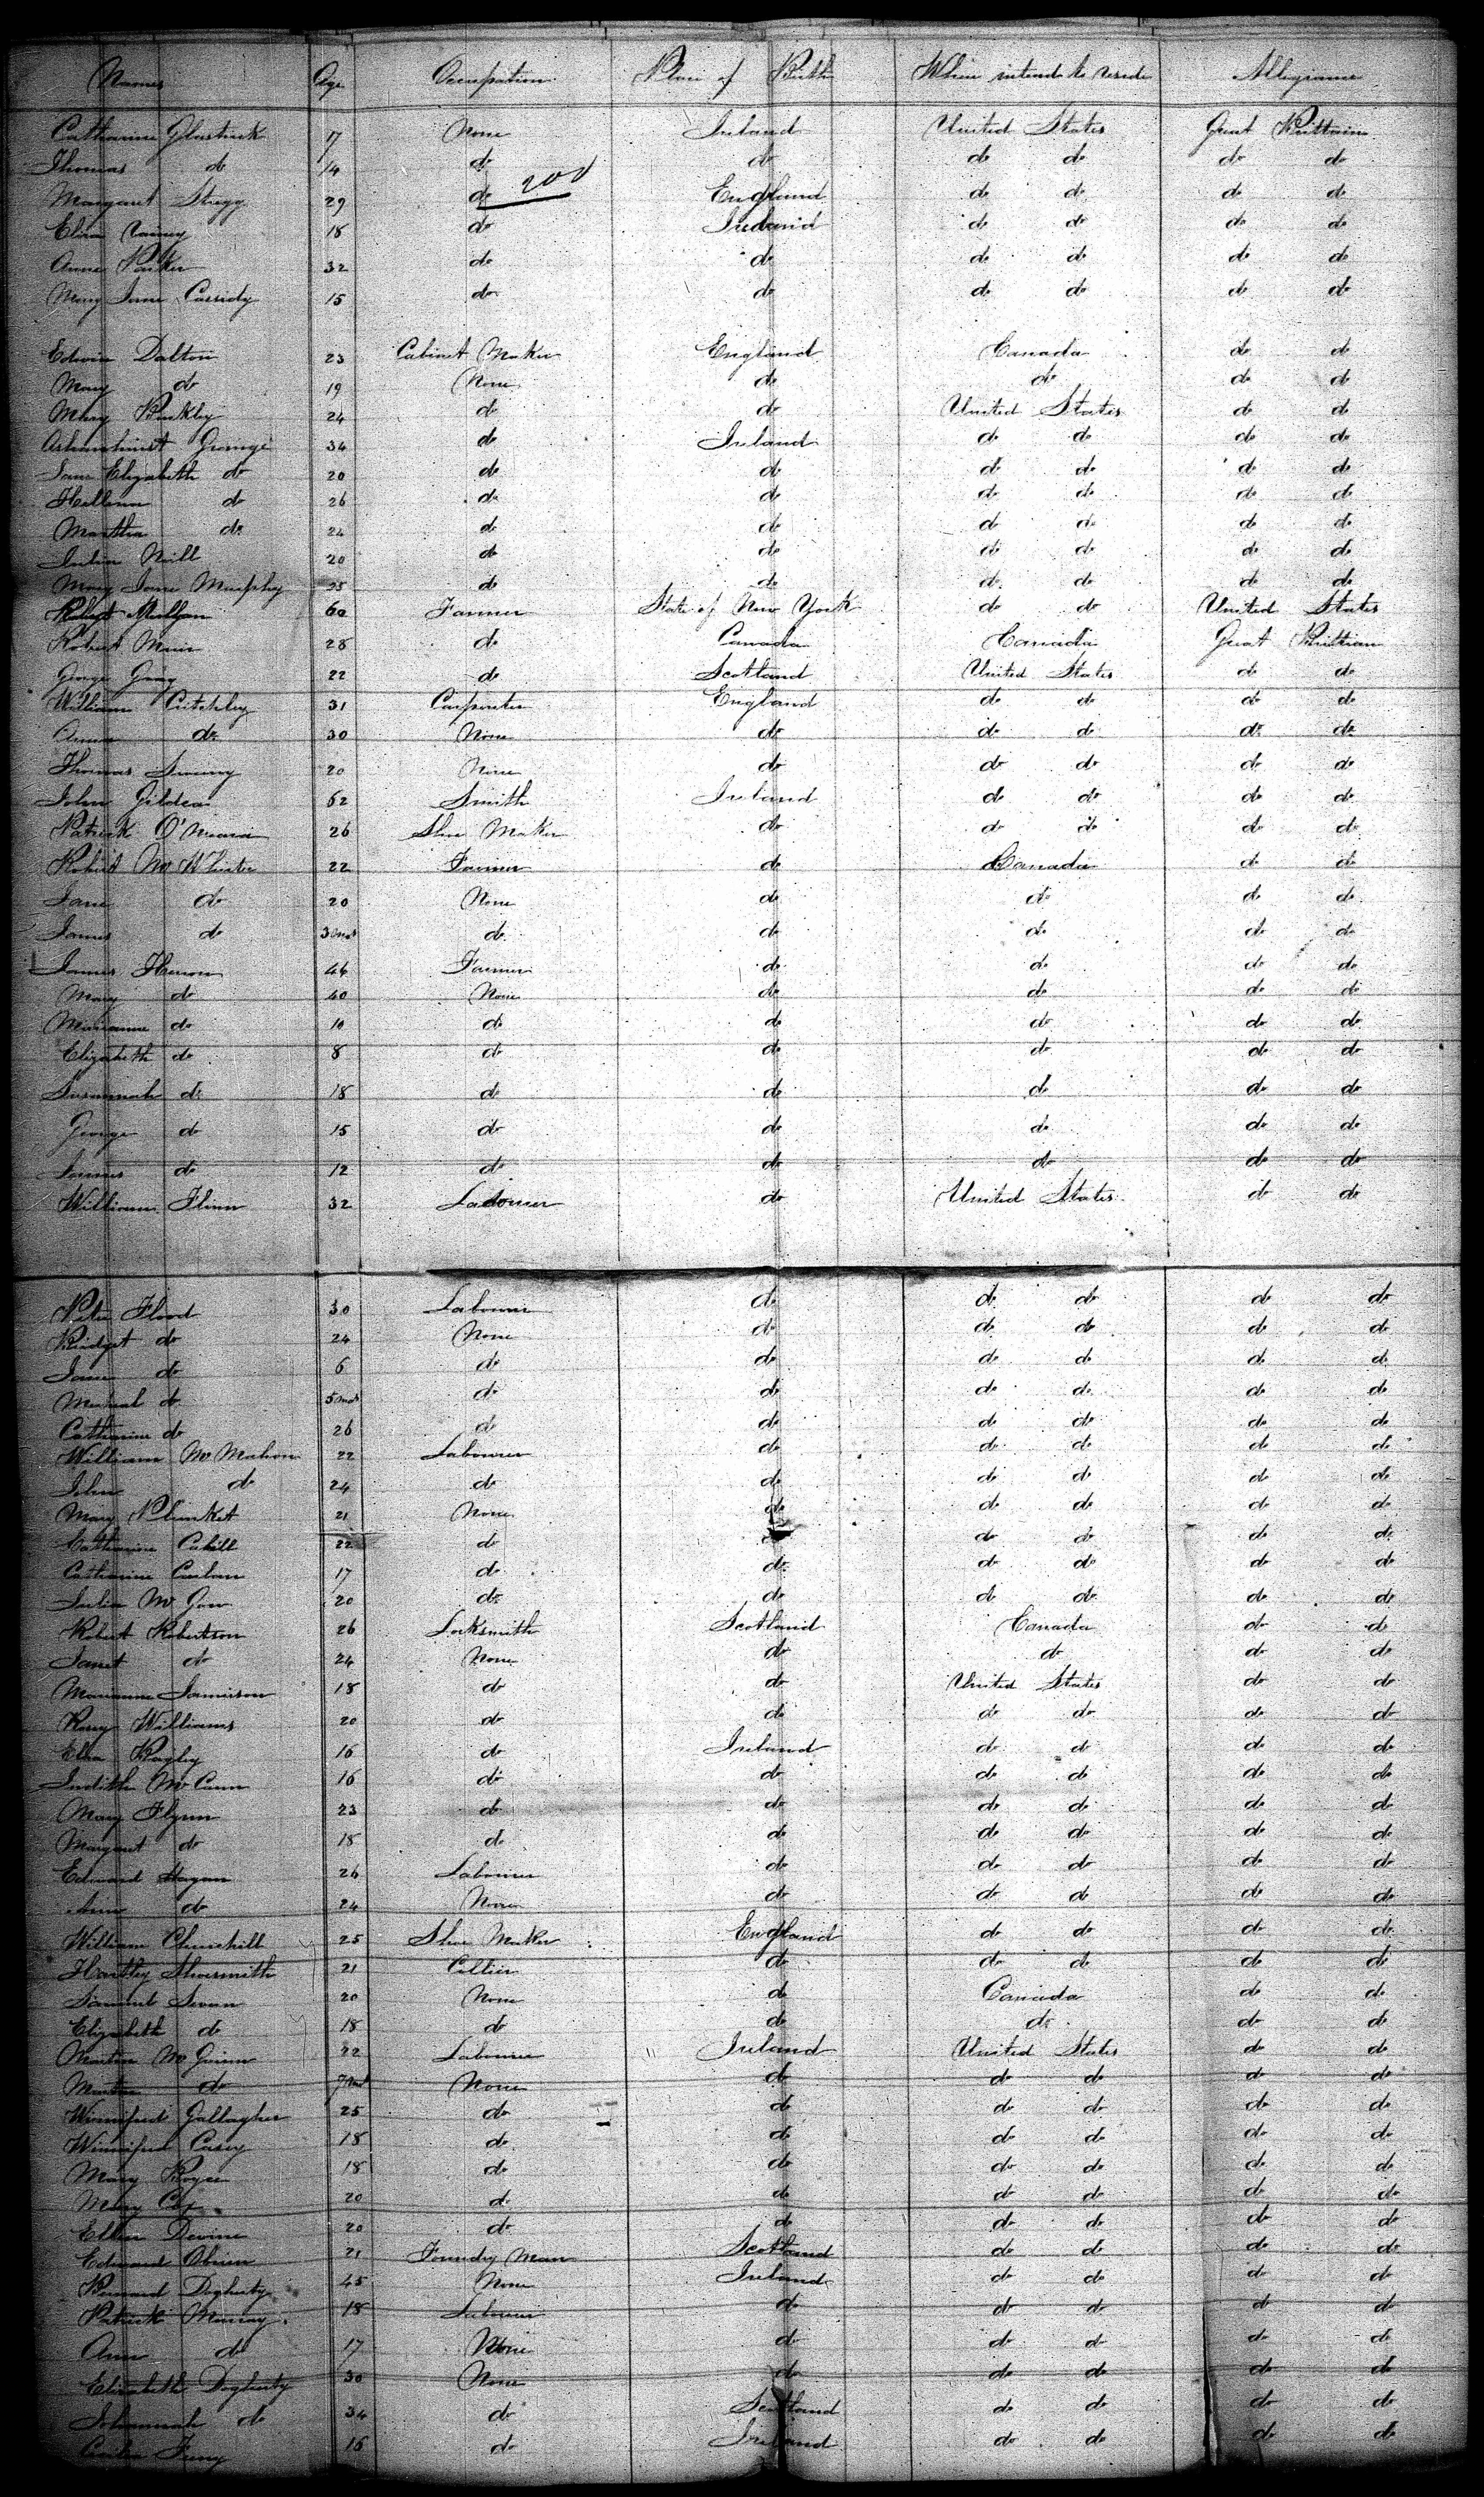 Names Age Occupation Place of Birth Where intend to reside Allegiance
Catharine 17 None Ireland United States Great Brittain
Thomas do 14 do do do do do do
200
Margaret Stegg 29 do England do do do do
Eliza Rainey 18 do Ireland do do do do
Anne Parker 32 do do do do do do
Mary Jane Cassidy 15 do do do do do do
Edwin Dalton 23 Cabinet Maker England Canada do do
Mary do 19 None do do do do
Mary Buckley 24 do do United States do do
George 34 do Ireland do do do do
Jane Elizabeth do 20 do do do do do do
Hellena do 26 do do do do do do
Martha do 24 do do do do do do
Julia Neill 20 do do do do do do
Mary Jane Murphy 25 do do do do do do
Robert 60 Farmer State of New York do do United States
Robert Muir 28 do Canada Canada Great Brittian
George Gray 22 do Scotland United States do do
William Critchley 31 Carpenter England do do do do
Anna do 30 None do do do do do
Thomas Sweeny 20 None do do do do do
John Gildea 62 Smith Ireland do do do do
Patrick O'Meara 26 Shoe Maker do do do do do
Robert McWhirter 22 Farmer do Canada do do
Jane do 20 None do do do do
James do 3 mos do do do do do
James Heron 46 Farmer do do do do
Mary do 40 None do do do do
Marianne do 10 do do do do do
Elizabeth do 8 do do do do do
Susannah do 18 do do do do do
George do 15 do do do do do
James do 12 do do do do do
William Flinn 32 Labourer do United States do do
Peter Flood 30 Labourer do do do do do
Bridget do 24 None do do do do do
Jane do 6 do do do do do do
Micheal do 5 mos do do do do do do
Catharine do 26 do do do do do do
William McMahon 22 Labourer do do do do do
John do 24 do do do do do do
Mary Plunket 21 None do do do do do
Catharine Cahill 22 do do do do do do
Catharine Carlan 17 do do do do do do
Julia McGow 20 do do do do do do
Robert Robertson 26 Locksmith Scotland Canada do do
Janet do 24 None do do do do
Marianne Jamieson 18 do do United States do do
Williams 20 do do do do do do
Eliza Bagley 16 do Ireland do do do do
Judith McCann 16 do do do do do do
Mary Flynn 23 do do do do do do
Margaret do 18 do do do do do do
Edward Hagan 26 Labourer do do do do do
Ann do 24 None do do do do do
William Churchill 25 Shoe Maker England do do do do
Hartley Shoesmith 21 Collier do do do do do
Samuel Sevan 20 None do Canada do do
Elizabeth do 18 do do do do do
Martin 22 Labourer Ireland United States do do
do 7 mos None do do do do do
Winnifred Gallagher 25 do do do do do do
Winnifred Casey 18 do do do do do do
Mary Boyce 18 do do do do do do
Mary Cox 20 do do do do do do
Ellen Devine 20 do do do do do do
Edward Obrien 21 Foundry Man Scotland do do do do
Bernard Dogherty 45 None Ireland do do do do
Patrick Murray 18 Labourer do do do do do
Ann do 17 None do do do do do
Elizabeth Dogherty 30 None do do do do do
Johannah do 34 do Scotland do do do do
16 do Ireland do do do do